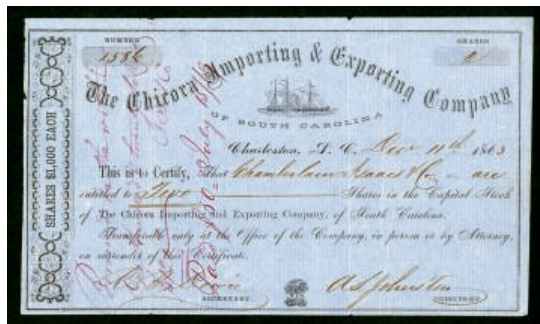 NUMBER
SHARES
1886
2
The Chicora Importing & Exporting Company
OF SOUTH CAROLINA
Charleston, S. C. Dec 11th 1863
This is to Certify, That Chamberlain Isaacs & Co are
entitled to Two Shares in the Capital Stock
of The Chicora Importing and Exporting Company, of South Carolina.
Transferable only at the Office of the Company, in person or by Attorney,
on surrender of this Certificate.
A S Johnston
SECRETARY
PRESIDENT
SHARES $1,000 EACH